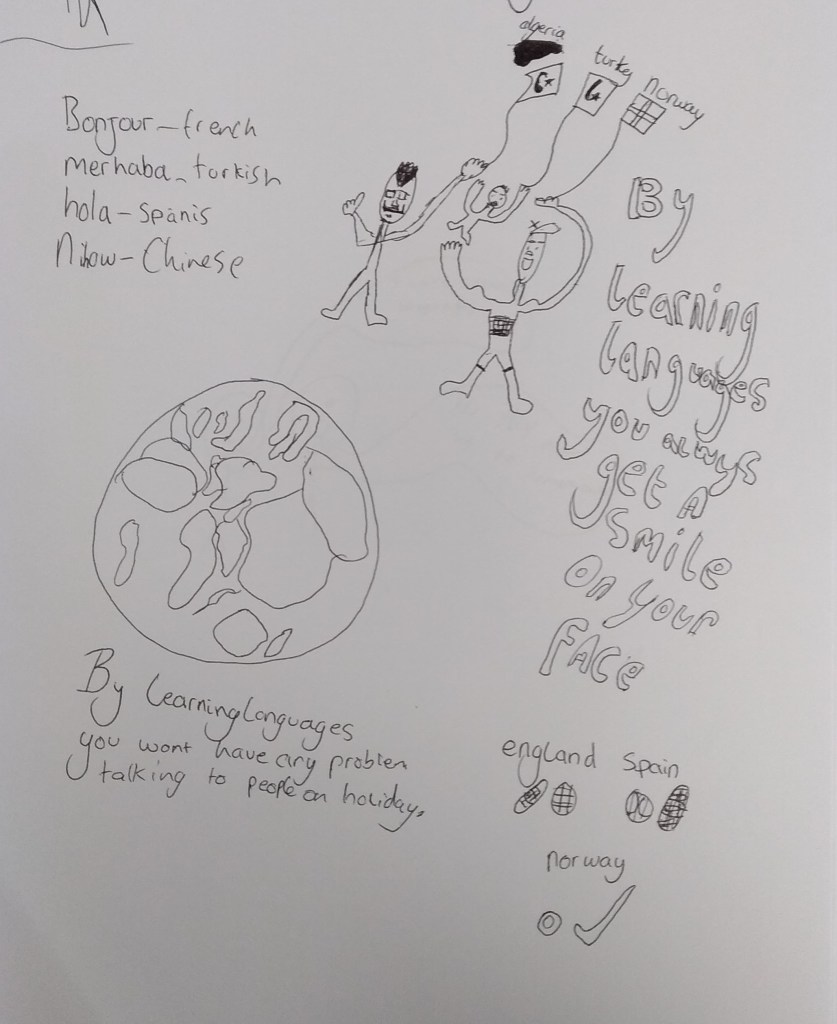 algeria
turkey
norway
Bonjour - french
merhaba - turkish
hola - spanis
Nihow - Chinese
By
learning
languages
you always
get a
smile
on your
face
By learning languages
you wont have any problem
talking to people on holiday.
england spain
norway